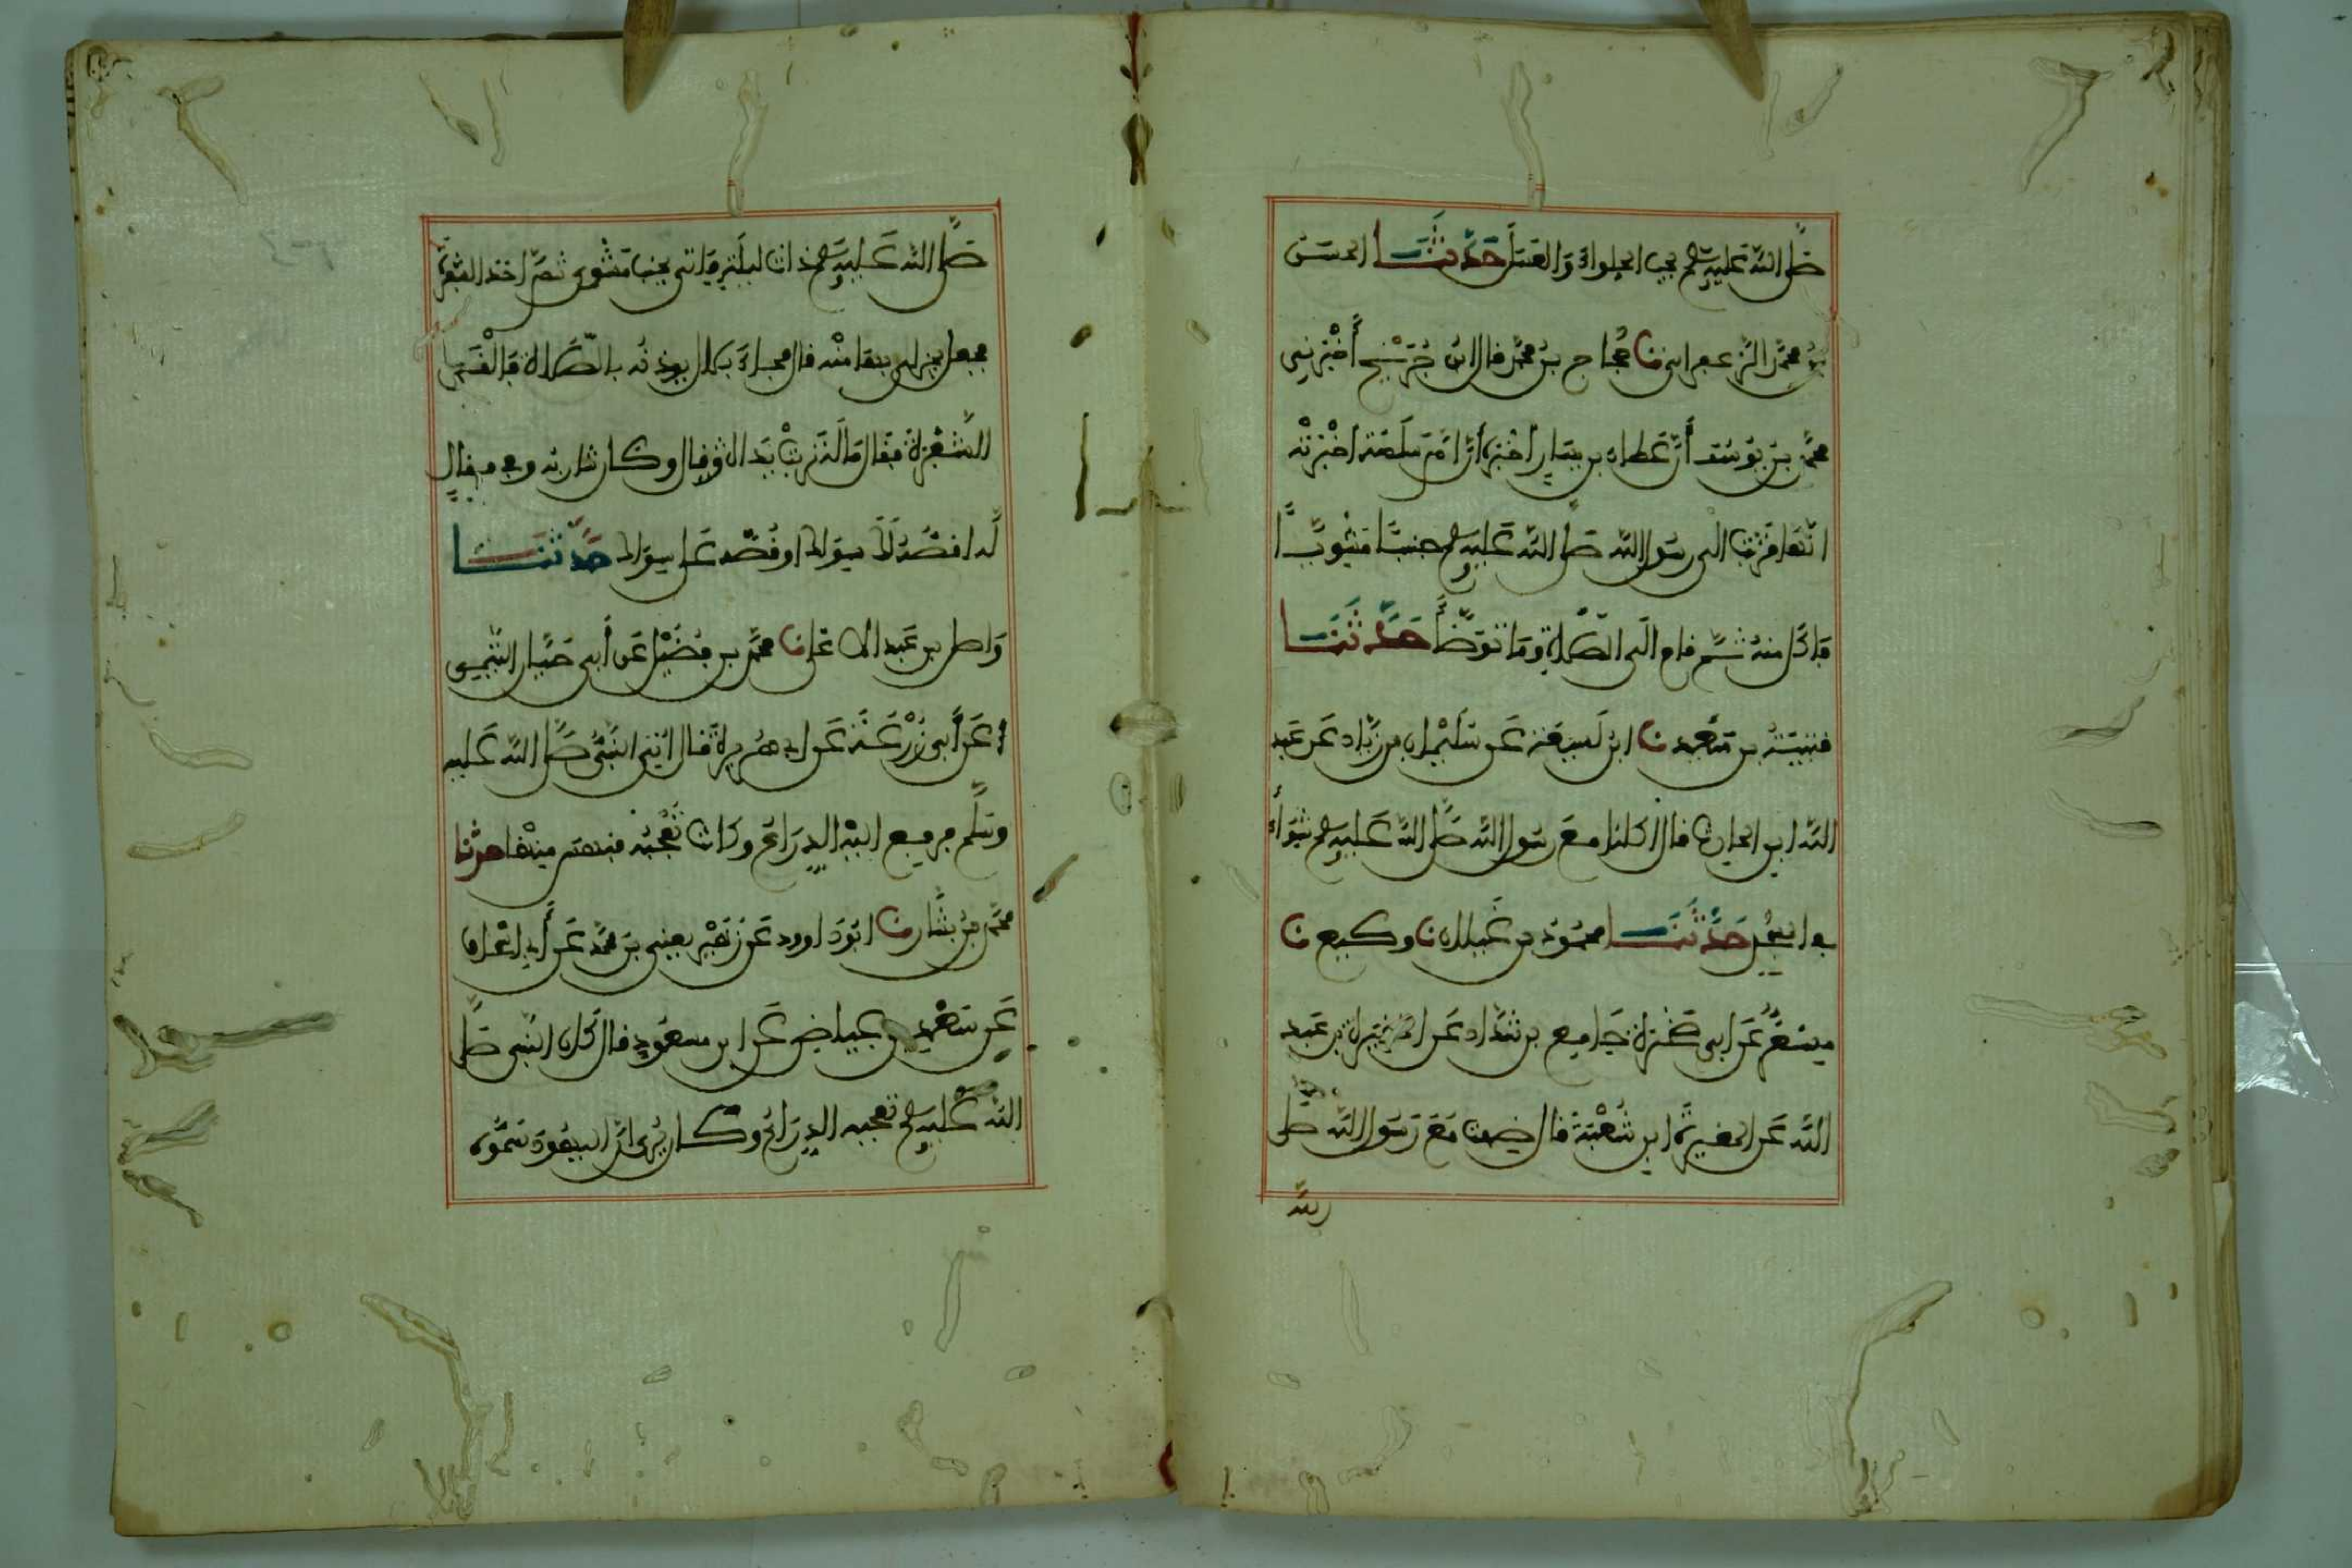 صلى الله عليه وسلم يحب الحلواء والعسل حدثنا الحسن
بن محمد الزعفراني نا حجاج بن محمد قال ابن جريج أخبرني
محمد بن يوسف أن عطاء بن يسار أخبره أن أم سلمة أخبرته
انها قربت الى رسول الله صلى الله عليه وسلم جنبا مشويا
فاكل منه ثم قام الى الصلاة وما توضأ حدثنا
قتيبة بن سعيد نا ابن لهيعة عن سليمان بن زياد عن عبد
الله ابن الحارث قال اكلنا مع رسول الله صلى الله عليه وسلم شواء
في المسجد حدثنا محمود بن غيلان نا وكيع نا
مسعر عن ابي صخرة جامع بن شداد عن المغيرة بن عبد
الله عن المغيرة ابن شعبة قال ضفت مع رسول الله صلى
الله
صلى الله عليه وسلم ذات ليلة فاتي بجنب مشوى ثم اخذ الشفرة
فجعل يحز لي بها منه قال فجاء بلال يوذنه بالصلاة فالقى
الشفرة فقال ما له تربت يداه قال وكان شاربه وفى فقال
له اقصه لك على سواك او قصه على سواك حدثنا
واصل بن عبد الاعلى نا محمد بن فضيل عن أبي حيان التيمي
عن أبي زرعة عن ابي هريرة قال اتي النبي صلى الله عليه
وسلم فرفع اليه الذراع وكانت تعجبه فنهس منها حدثنا
محمد بن بشار نا ابو داوود عن زهير يعني بن محمد عن أبي اسحاق
عن سعد بن عياض عن ابن مسعود قال كان النبي صلى
الله عليه وسلم تعجبه الذراع وكان يرى ان اليهود سموه